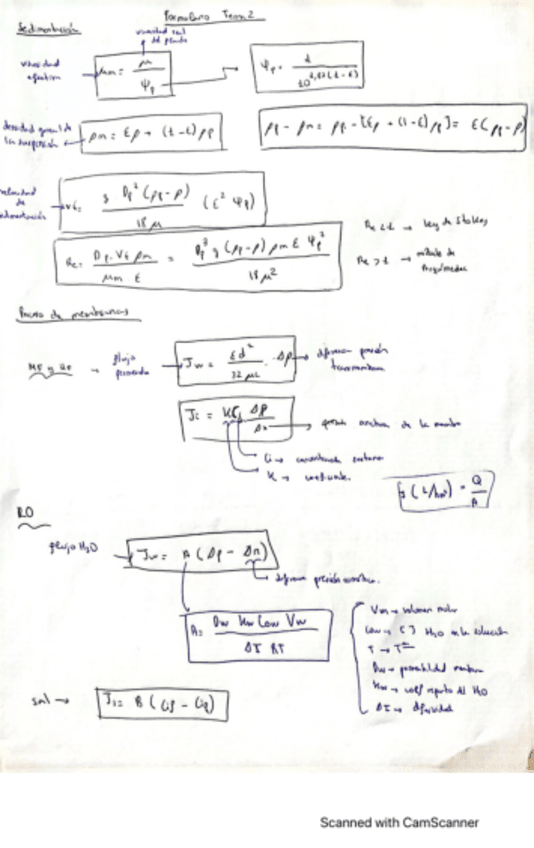 Formulario Tema 2
Sedimentación
viscosidad real del fluido
viscosidad efectiva
μm = μ / Ψp
Ψp = 1 / 10^1,82(1-ε)
densidad general de la suspensión
ρm = ερ + (1-ε)ρp
ρp - ρm = ρp - [ερ + (1-ε)ρp] = ε(ρp - ρ)
velocidad de sedimentación
vt = g Dp² (ρp - ρ) / 18 μ (ε² Ψp)
Re = Dp · Vt ρm / μm ε = Dp³ g (ρp - ρ) ρm ε Ψp² / 18 μ²
Re < 1 → Ley de Stokes
Re > 1 → método de
Proceso de membranas
MF y UF → flujo permeado
Jw = ε d² / 32 μL · Δp → diferencia presión transmembrana
Jc = K Ci Δp / Δx → de la membrana
Ci → concentración
K →
J (L/hm²) = Q / A
RO
flujo H2O
Jw = A (Δp - Δπ)
diferencia presión osmótica.
A = Dw Kw Cow Vw / ΔX RT
Vw → volumen molar
Cow → [ ] H2O en la solución
T → Tª
Dw → permeabilidad membrana
Kw → coef reparto del H2O
sal → Js = B (
Scanned with CamScanner